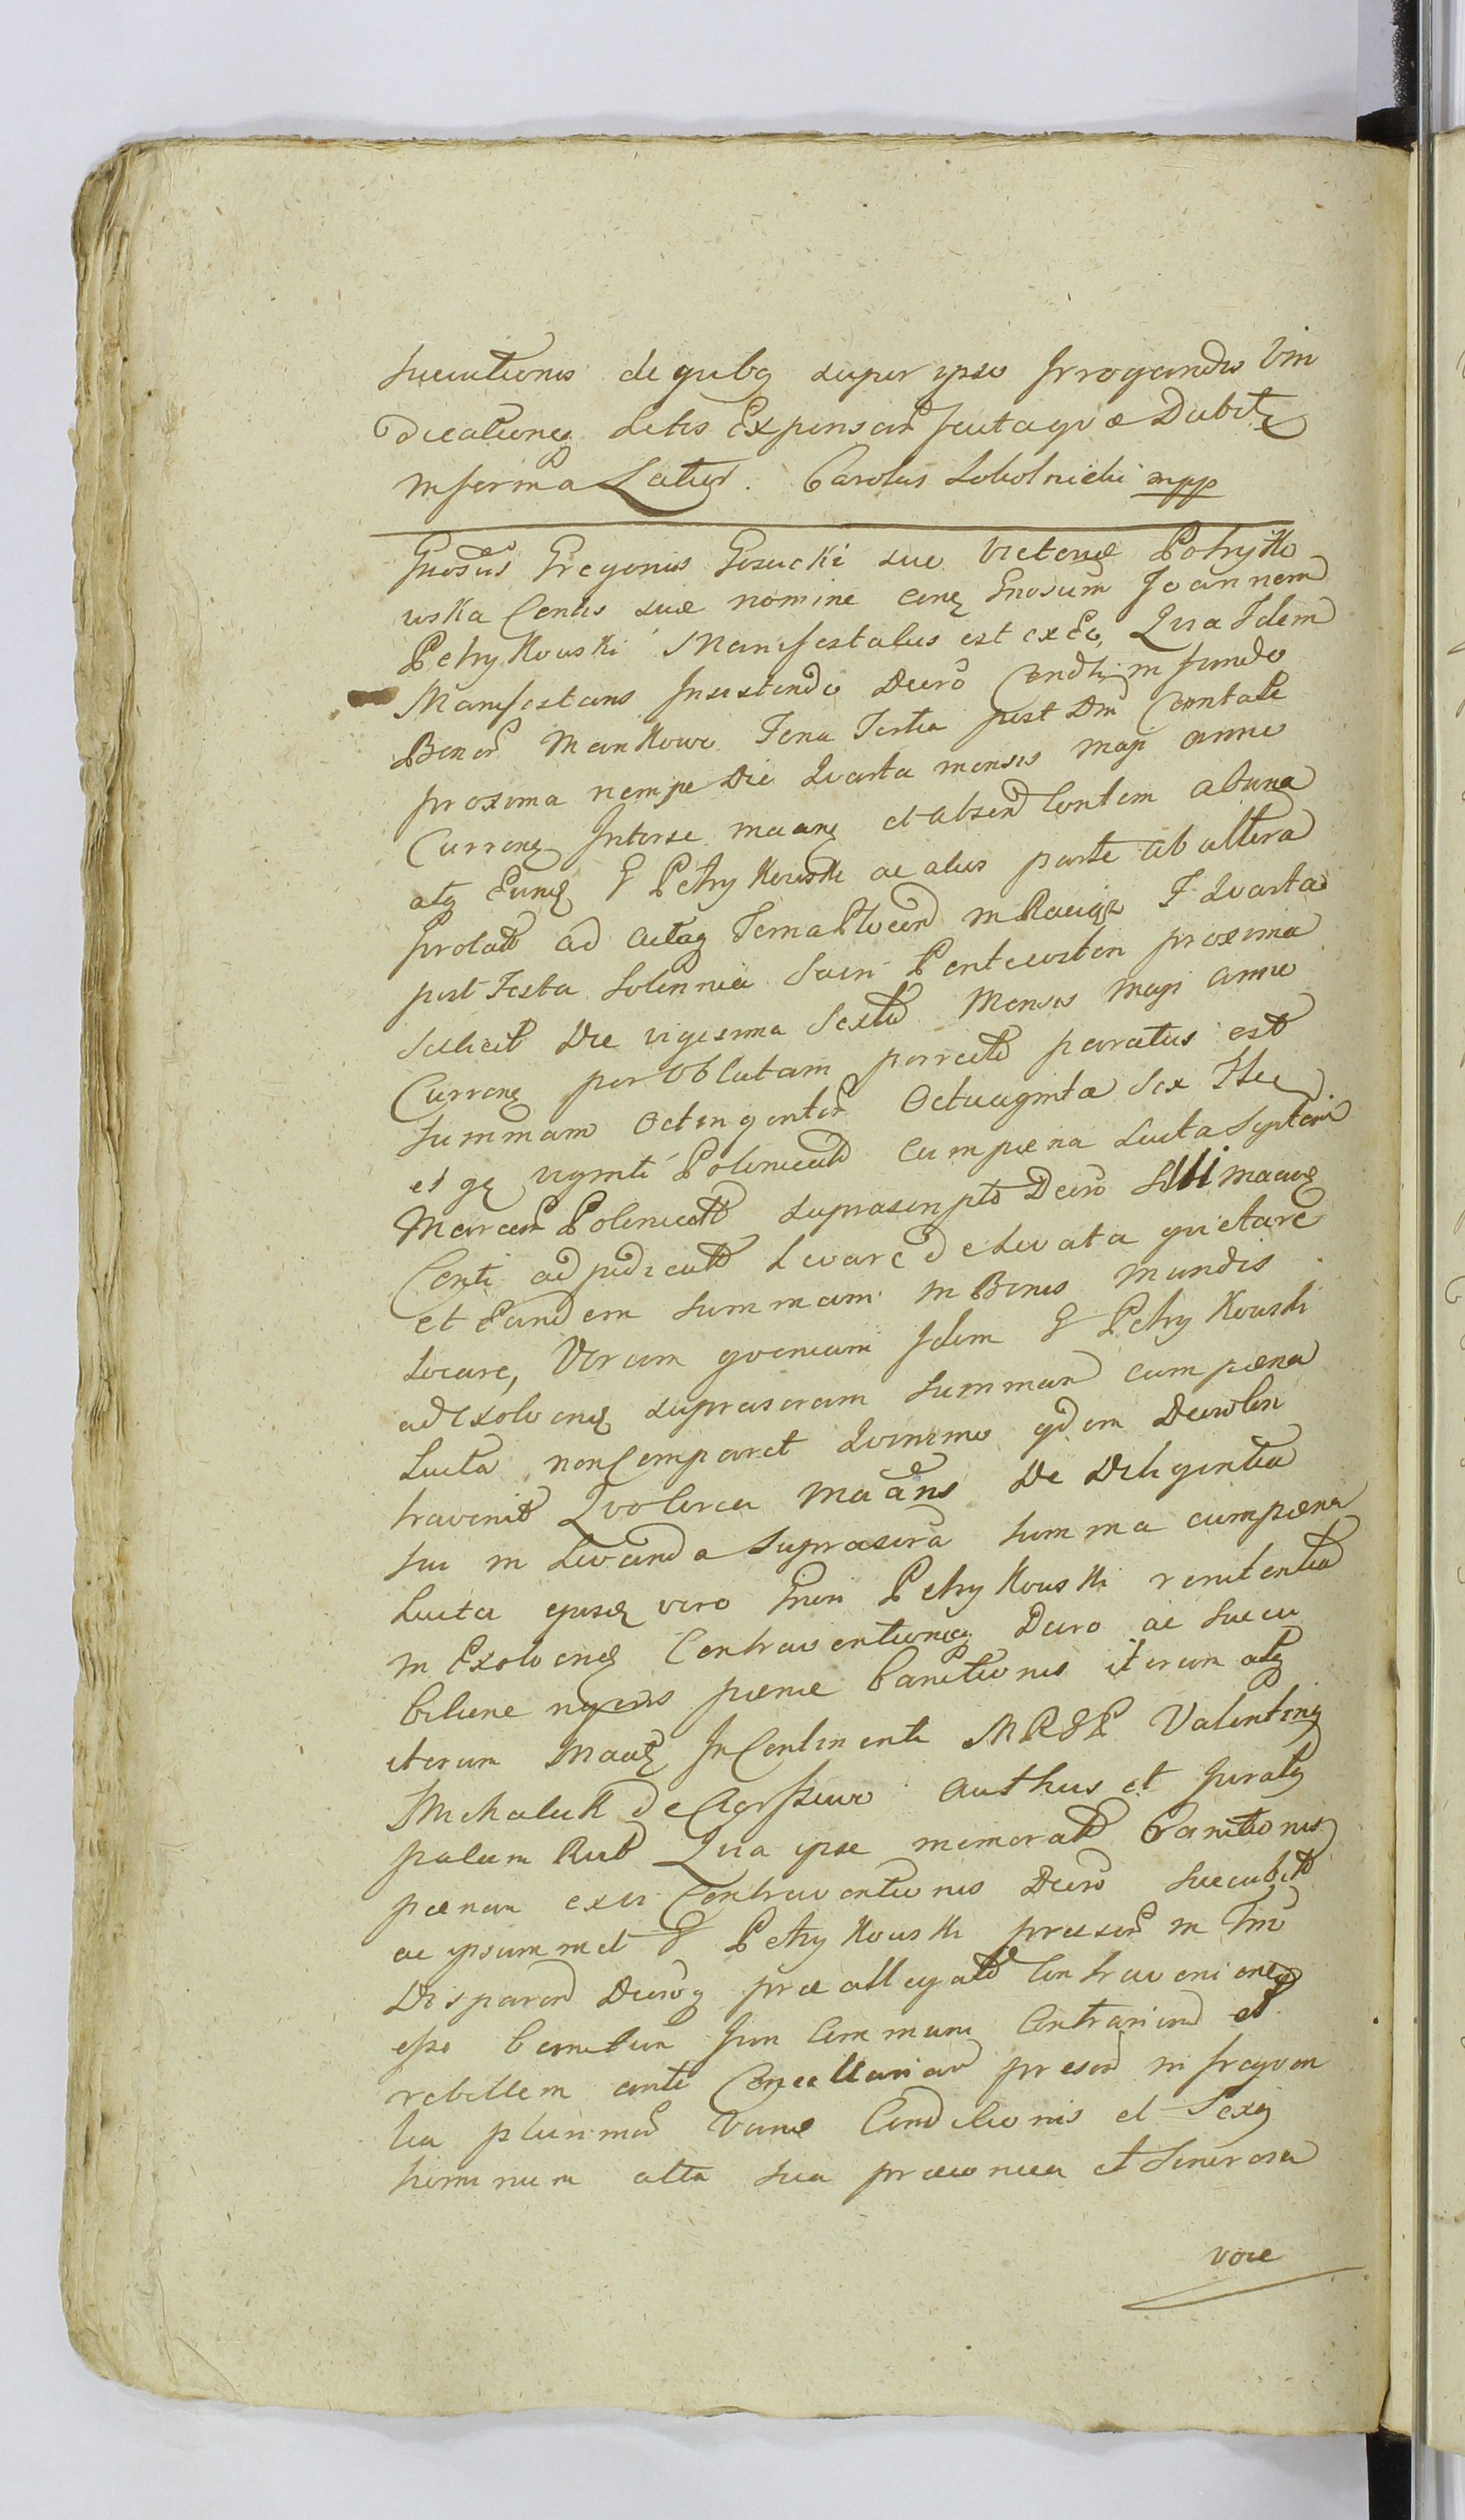 Succutionis de quibq super ipso Irrogandis Vin
dicationeq Litis Expensar Scutaque Dubitz
in forma Latiur. Carolus Sokolnicki mpp
Gnosus Gregorius Gozucki suo Victoriæ Potryko
wska Contis suæ nomine conq Gnosum Joannem
Petrykowski Manifestatus est ex Eo, Qua Idem
Manifestans Insistendo Decro Condti in fundo
Bonor Mankowo Feria Tertia post Dm Contate
proxima nempe Die Quarta mensis Maji anno
Curren Inter se maanq et absen Contem ab una
atq Eunq G Petrykowski ac alios parte ab altera
prolato ad Acta Terna Plocen in Raciąż F Quarta
post Festa Solennia Sacri Pentecosten proxima
scilicet Die vigesima Sexta Mensis Maji anno
Curren per Oblatam porrecto paratus est
Summam Octingentor Octuaginta Sex Flo
et gr viginti Polonical cum pæna Lucta Septem
Marcar Polonical suprascripto Decro maanq
Conti adjudicato Levare de Levata quietare
et Eandem Summam in Bonis Mundis
Locare, Verum quoniam Idem G Petrykowski
ad Exolvenq suprascram Summam cum pæna
Lucta non Comparet Quinimo eidem Decro Con
travenit Quo Circa Maans De Diligentia
sui in Levanda suprascra Summa cum pæna
Lucta ejusq vero Gnosi Petrykowski renitentia
in Exolvenq Contraventioneq Decro ac succu
bitione pænæ Banitionis iterum atq
iterum Maatq In Continenti MRGP Valentinq
Michaluk de authus et Juratq
palam Rub Qua ipse memorato Banitionis
pænam exvi Contraventionis Decro succubito
ac ipsummet G Petrykowski præsen in Tmo
Disparen Decroq præallegato Contravenienq
esse Banitum Jun Communi Contrarium et
rebellem ante Cancellariam presen in frequen
tia plurimor Variæ Conditionis et Sexq
hominum alta sua præconica et Sonorosa
voce